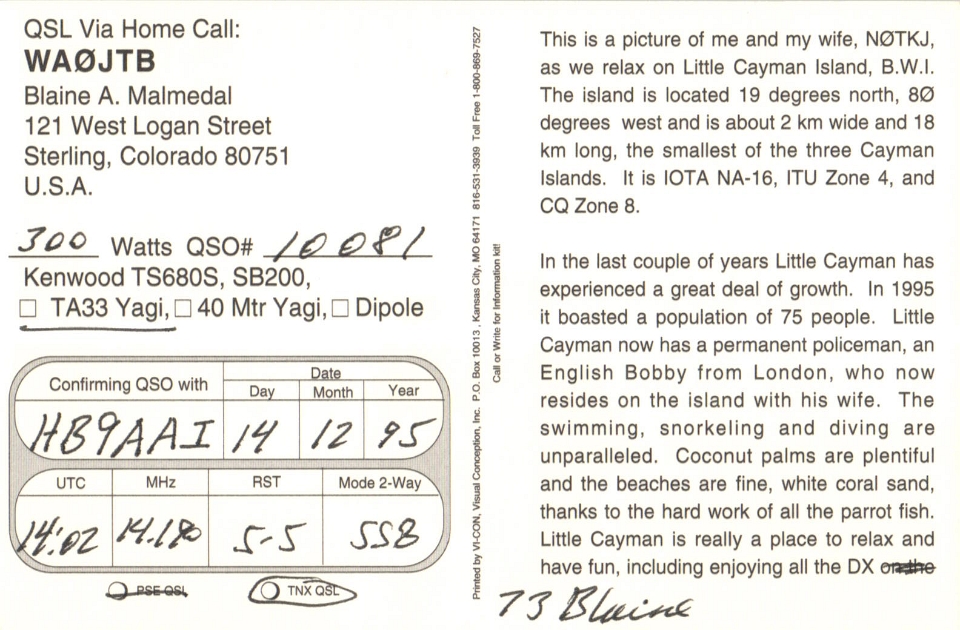 QSL Via Home Call:
WAØJTB
Blaine A. Malmedal
121 West Logan Street
Sterling, Colorado 80751
U.S.A.
300 Watts QSO# 10081
Kenwood TS680S, SB200,
☐ TA33 Yagi, ☐ 40 Mtr Yagi, ☐ Dipole
Confirming QSO with
Date
Day Month Year
HB9AAI 14 12 95
UTC MHz RST Mode 2-Way
14:02 14.180 5-5 SSB
PSE QSL TNX QSL
Printed by VI-CON, Visual Conception, Inc. P.O. Box 10013 , Kansas City, MO 64171 816-531-3939 Toll Free 1-800-869-7527
Call or Write for Information kit!
This is a picture of me and my wife, NØTKJ,
as we relax on Little Cayman Island, B.W.I.
The island is located 19 degrees north, 8Ø
degrees west and is about 2 km wide and 18
km long, the smallest of the three Cayman
Islands. It is IOTA NA-16, ITU Zone 4, and
CQ Zone 8.
In the last couple of years Little Cayman has
experienced a great deal of growth. In 1995
it boasted a population of 75 people. Little
Cayman now has a permanent policeman, an
English Bobby from London, who now
resides on the island with his wife. The
swimming, snorkeling and diving are
unparalleled. Coconut palms are plentiful
and the beaches are fine, white coral sand,
thanks to the hard work of all the parrot fish.
Little Cayman is really a place to relax and
have fun, including enjoying all the DX on the
73 Blaine